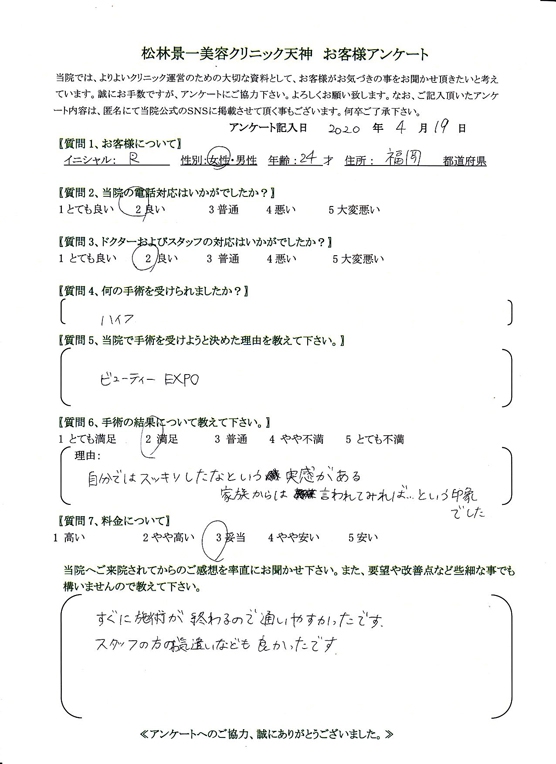 松林景一美容クリニック天神 お客様アンケート
当院では、よりよいクリニック運営のための大切な資料として、お客様がお気づきの事をお聞かせ頂きたいと考え
ています。誠にお手数ですが、アンケートにご協力下さい。よろしくお願い致します。なお、ご記入頂いたアンケ
ート内容は、匿名にて当院公式のSNSに掲載させて頂く事もございます。何卒ご了承下さい。
アンケート記入日 2020 年 4 月 19 日
【質問1、お客様について】
イニシャル： R 性別：女性・男性 年齢：24 才 住所： 福岡 都道府県
【質問2、当院の電話対応はいかがでしたか？】
1とても良い 2良い 3普通 4悪い 5大変悪い
【質問3、ドクターおよびスタッフの対応はいかがでしたか？】
1 とても良い 2 良い 3 普通 4悪い 5大変悪い
【質問4、何の手術を受けられましたか？】
ハイフ
【質問5、当院で手術を受けようと決めた理由を教えて下さい。】
ビューティー EXPO
【質問6、手術の結果について教えて下さい。】
1 とても満足 2 満足 3 普通 4 やや不満 5 とても不満
理由：
自分ではスッキリしたなという 実感がある
家族からは 言われてみれば…という印象
でした
【質問7、料金について】
1 高い 2やや高い 3妥当 4やや安い 5安い
当院へご来院されてからのご感想を率直にお聞かせ下さい。また、要望や改善点など些細な事でも
構いませんので教えて下さい。
すぐに施術が終わるので通いやすかったです。
スタッフの方のお気遣いなども良かったです。
≪アンケートへのご協力、誠にありがとうございました。≫